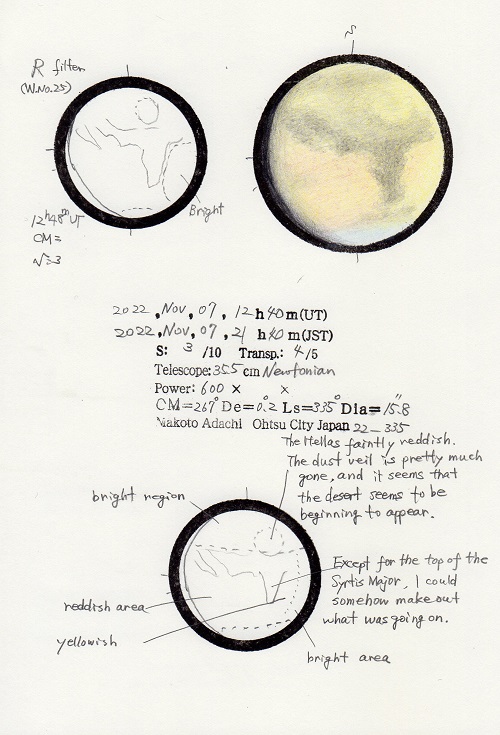 S
R filter
(W.No.25)
Bright
12h48mUT
CM=
√=3
2022, Nov, 07, 12h40m(UT)
2022, Nov, 07, 21h40m(JST)
S: 3/10 Transp.: 4/5
Telescope: 35.5cm Newtonian
Power: 600 × ×
CM=267° De=0.2 Ls=335° Dia=15.8"
Makoto Adachi Ohtsu City Japan 22_335
The Hellas faintly reddish.
The dust veil is pretty much
gone, and it seems that
the desert seems to be
beginning to appear.
bright region
Except for the top of the
Syrtis Major, I could
somehow make out
what was going on.
reddish area
yellowish
bright area